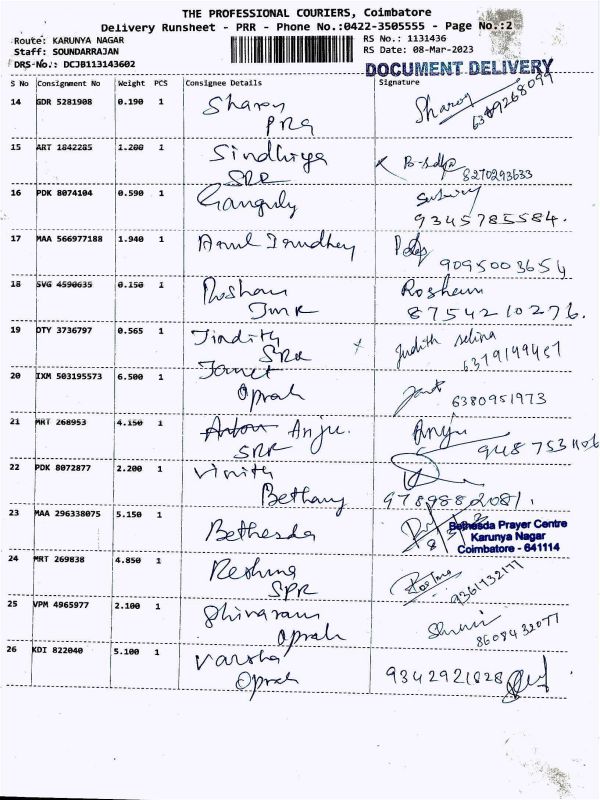 THE PROFESSIONAL COURIERS, Coimbatore
Delivery Runsheet - PRR - Phone No.:0422-3505555 - Page No.:2
Route: KARUNYA NAGAR
RS No.: 1131436
Staff: SOUNDARRAJAN
RS Date: 08-Mar-2023
DRS-No.: DCJB113143602
DOCUMENT DELIVERY
S No Consignment No Weight PCS Consignee Details Signature
14 GDR 5281908 0.190 1 Sharon Sharon
PRG
15 ART 1842285 1.200 1 Sindhiya
SRR 8270293633
16 PDK 8074104 0.590 1 Ganguly
9345785584.
17 MAA 566977188 1.940 1 Arul Irudhey
9095003654
18 SVG 4590635 0.150 1 Roshan Roshan
JMR 8754210276.
19 DTY 3736797 0.565 1 Judith Judith selina
SRR
20 IXM 503195573 6.500 1 Janet
Oprah 6380951973
21 MRT 268953 4.150 1 Anju. Anju
SRR
22 PDK 8072877 2.200 1 Vinith
Bethany 9789882081.
23 MAA 296338075 5.150 1 Bethesda
Bethesda Prayer Centre
Karunya Nagar
Coimbatore - 641114
24 MRT 269838 4.850 1 Reshma Reshma
SPR 9361732177
25 VPM 4965977 2.100 1 Shivaram
Oprah 8608432077
26 KDI 822040 5.100 1 Varsha
Oprah 9342921828